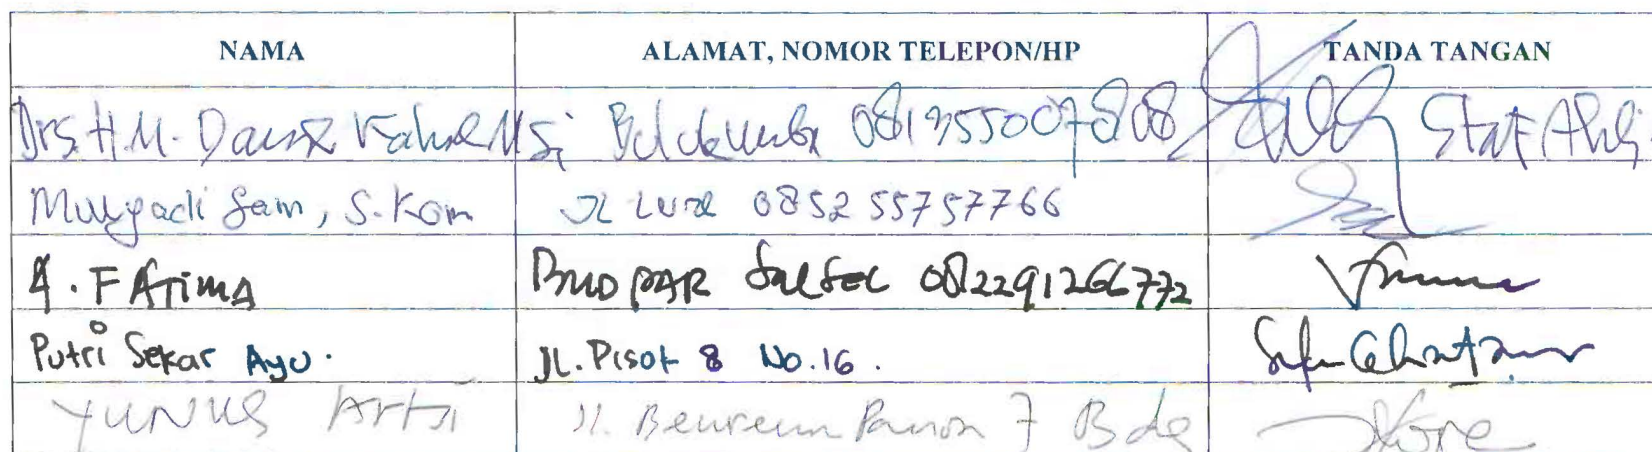 NAMA ALAMAT, NOMOR TELEPON/HP TANDA TANGAN
Drs. H. M. Bulukumba 081355007808 Staf Ahli
Mulyadi Sam, S.Kom JL LURE 0852 55757766
A. FATIMA BUDPAR SulSel 082291266772
Putri Sekar Ayu. JL. Pisot 8 No. 16.
YUNUS Jl. Beureum Panon 7 Bdg